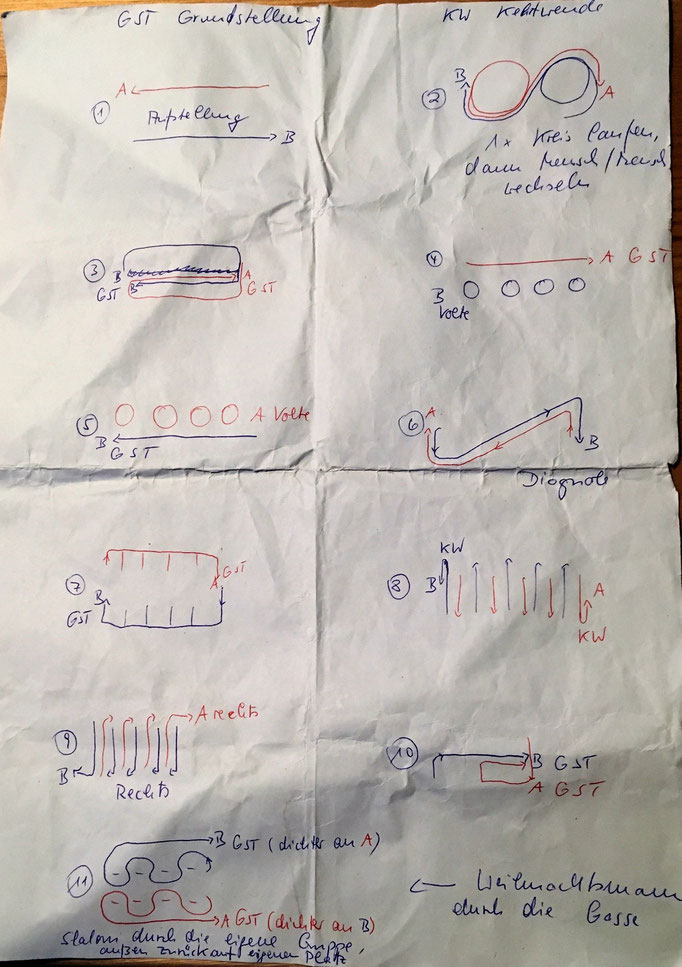 GST Grundstellung
KW Kehrtwende
1
A
Aufstellung
B
2
B
A
1x Kreis laufen,
dann Mensch/Mensch
wechseln
3
B
A
GST
B
GST
4
A GST
B
Volte
5
A Volte
B
GST
6
A
B
Diagnole
7
GST
A
B
GST
8
KW
B
A
KW
9
A rechts
B
Rechts
10
B GST
A GST
11
B GST (dichter an A)
A GST (dichter an B)
Slalom durch die eigene Gruppe,
außen zurück auf eigenen Platz
Weihnachtsmann
durch die Gasse